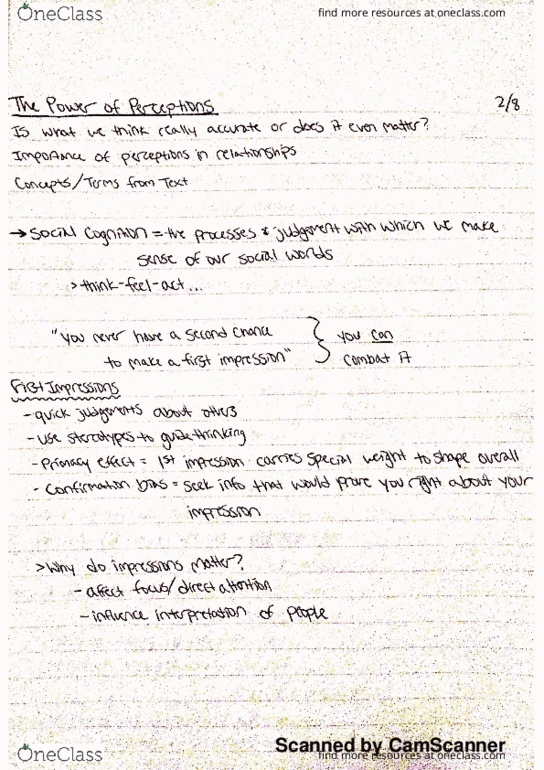 OneClass
find more resources at oneclass.com
The Power of Perceptions 2/8
Is what we think really accurate or does it even matter?
Importance of perceptions in relationships
Concepts/Terms from Text
→ Social Cognition = the processes & judgement with which we make
sense of our social worlds
> think-feel-act...
"you never have a second chance } you can
to make a first impression" combat it
First Impressions
- quick judgements about others
- use stereotypes to guide thinking
- Primacy effect = 1st impression carries special weight to shape overall
- Confirmation bias = seek info that would prove you right about your
impression
> Why do impressions matter?
- affect focus/direct attention
- influence interpretation of people
Scanned by CamScanner
OneClass
find more resources at oneclass.com